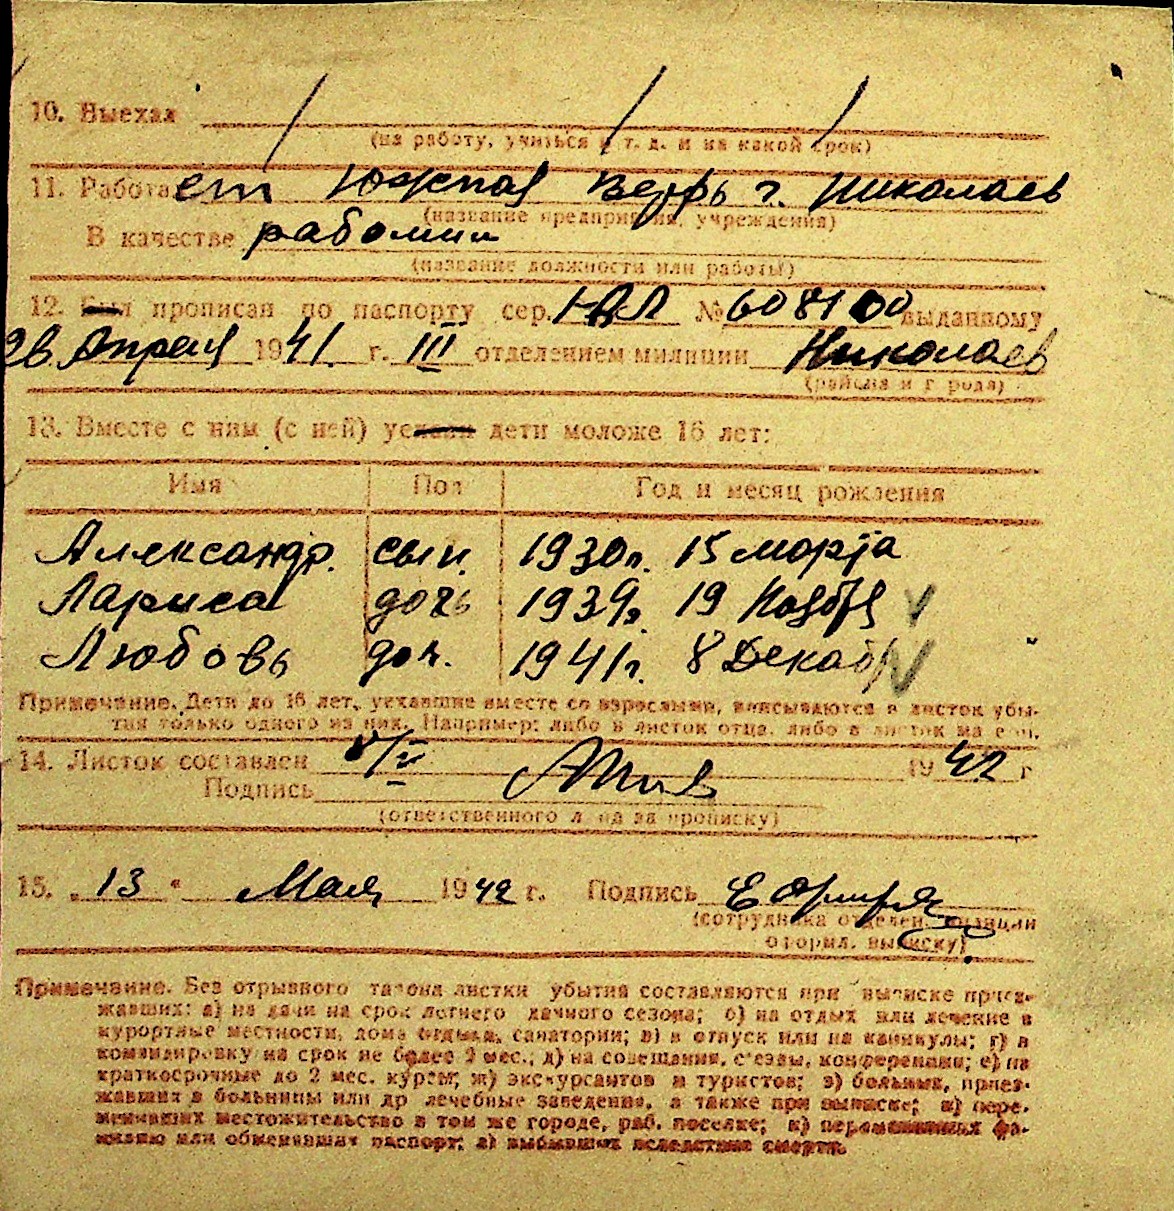 10. Выехал
(на работу, учиться и т. д. и на какой срок)
11. Работает Южная верфь г. Николаев
(название предприятия, учреждения)
В качестве
(название должности или работы)
12. Был прописан по паспорту сер. № 608100 выданному
Апреля 1941 г. III отделением милиции Николаев
(района и города)
13. Вместе с ним (с ней) дети моложе 16 лет:
Имя Пол Год и месяц рождения
Александр. сын. 1930г. 15 марта
Лариса дочь 1939г. 19 Ноября
Любовь доч. 1941г. 8 Декабр
Примечание. Дети до 16 лет, уехавшие вместе со взрослыми, вписываются в листок убы-
тия только одного из них. Например: либо в листок отца, либо в листок матери.
14. Листок составлен 1942 г
Подпись
(ответственного лица за прописку)
15. „13“ Мая 1942 г. Подпись
(сотрудника отделен. милиции
оформл. выписку)
Примечание. Без отрывного талона листки убытия составляются при выписке приез-
жавших: а) на дачи на срок летнего дачного сезона; б) на отдых или лечение в
курортные местности, дома отдыха, санатории; в) в отпуск или на каникулы; г) в
командировку на срок не более 2 мес.; д) на совещания, с'езды, конференции; е) на
краткосрочные до 2 мес. курсы; ж) экскурсантов и туристов; з) больных, приез-
жавших в больницы или др лечебные заведения, а также при выписке; и) пере-
менивших местожительство в том же городе, раб. поселке; к) переменивших фа-
милию или обменивших паспорт; л) выбывших вследствие смерти.